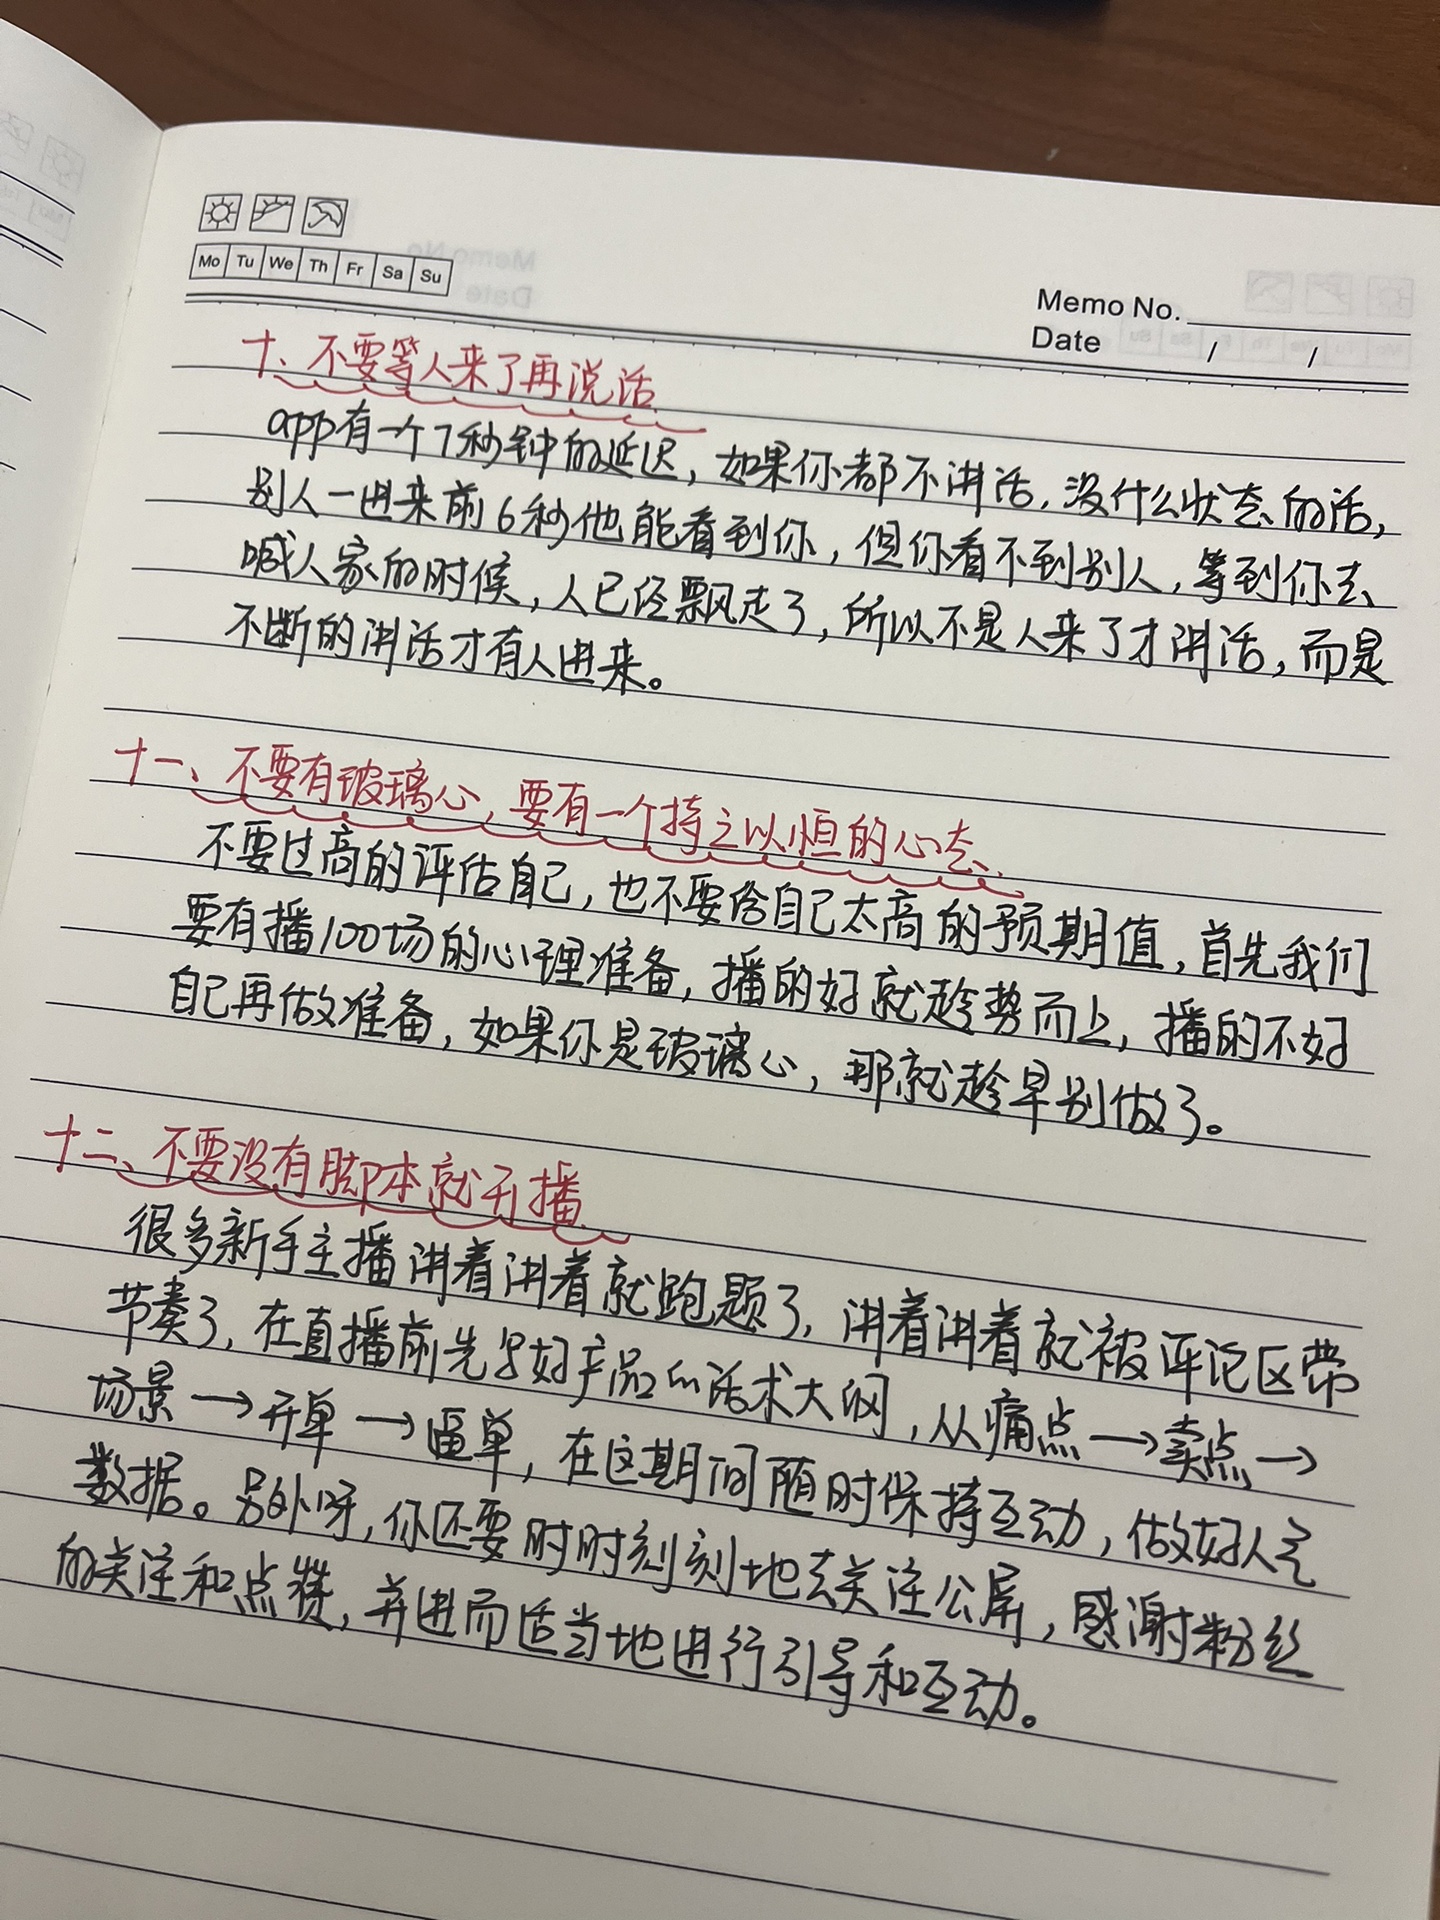 Mo Tu We Th Fr Sa Su
Memo No.
Date / /
十、不要等人来了再说话
app有一个7秒钟的延迟，如果你都不讲话，没什么状态的话，
别人一进来前6秒他能看到你，但你看不到别人，等到你去
喊人家的时候，人已经飘走了，所以不是人来了才讲话，而是
不断的讲话才有人进来。
十一、不要有玻璃心，要有一个持之以恒的心态、
不要过高的评估自己，也不要给自己太高的预期值，首先我们
要有播100场的心理准备，播的好就趁势而上，播的不好
自己再做准备，如果你是玻璃心，那就趁早别做了。
十二、不要没有脚本就开播
很多新手主播讲着讲着就跑题了，讲着讲着就被评论区带
节奏了，在直播前先写好产品的话术大纲，从痛点→卖点→
场景→开单→逼单，在这期间随时保持互动，做好人气
数据。另外呀，你还要时时刻刻地去关注公屏，感谢粉丝
的关注和点赞，并进而适当地进行引导和互动。